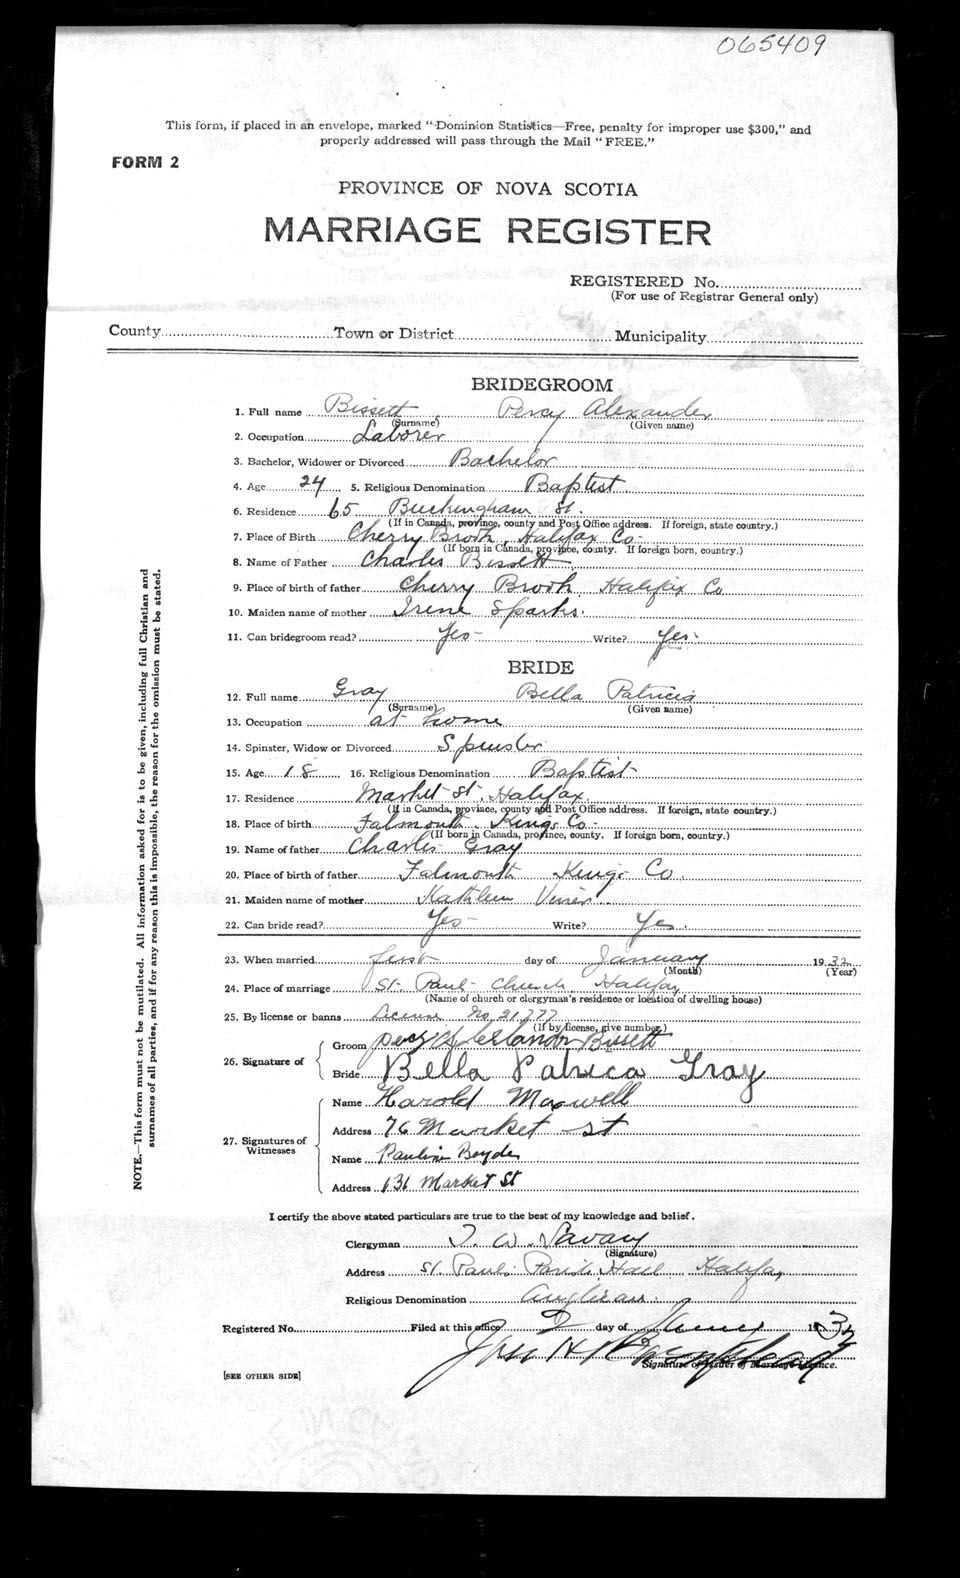 065409
This form, if placed in an envelope, marked "Dominion Statistics—Free, penalty for improper use $300," and
properly addressed will pass through the Mail "FREE."
FORM 2
PROVINCE OF NOVA SCOTIA
MARRIAGE REGISTER
REGISTERED No.
(For use of Registrar General only)
County Town or District Municipality
BRIDEGROOM
1. Full name Bissett, Percy Alexander
(Surname) (Given name)
2. Occupation Laborer
3. Bachelor, Widower or Divorced Bachelor
4. Age 24 5. Religious Denomination Baptist
6. Residence 65 Buckingham St.
(If in Canada, province, county and Post Office address. If foreign, state country.)
7. Place of Birth Cherry Brook, Halifax Co
(If born in Canada, province, county. If foreign born, country.)
8. Name of Father Charles Bissett
9. Place of birth of father Cherry Brook Halifax Co
10. Maiden name of mother Irene Sparks
11. Can bridegroom read? Yes Write? Yes
BRIDE
12. Full name Gray Bella Patricia
(Surname) (Given name)
13. Occupation at home
14. Spinster, Widow or Divorced Spinster
15. Age 18 16. Religious Denomination Baptist
17. Residence Market St. Halifax
(If in Canada, province, county and Post Office address. If foreign, state country.)
18. Place of birth Falmouth Kings Co
(If born in Canada, province, county. If foreign born, country.)
19. Name of father Charles Gray
20. Place of birth of father Falmouth Kings Co.
21. Maiden name of mother Kathleen
22. Can bride read? Yes Write? Yes.
23. When married first day of January 1932
(Month) (Year)
24. Place of marriage St. Paul's Church Halifax
(Name of church or clergyman's residence or location of dwelling house)
25. By license or banns License No. 21777
(If by license, give number)
26. Signature of
Groom Percy Bissett
Bride Bella Patrica Gray
27. Signatures of Witnesses
Name Harold Maxwell
Address 76 Market St
Name Pauline
Address 131 Market St
I certify the above stated particulars are true to the best of my knowledge and belief.
Clergyman T. W. Savary
(Signature)
Address St. Pauls Parish Hall Halifax
Religious Denomination Anglican
Registered No. Filed at this office 2 day of 1932
Signature of Issuer of Marriage Licence.
[SEE OTHER SIDE]
NOTE.—This form must not be mutilated. All information asked for is to be given, including full Christian and
surnames of all parties, and if for any reason this is impossible, the reason for the omission must be stated.